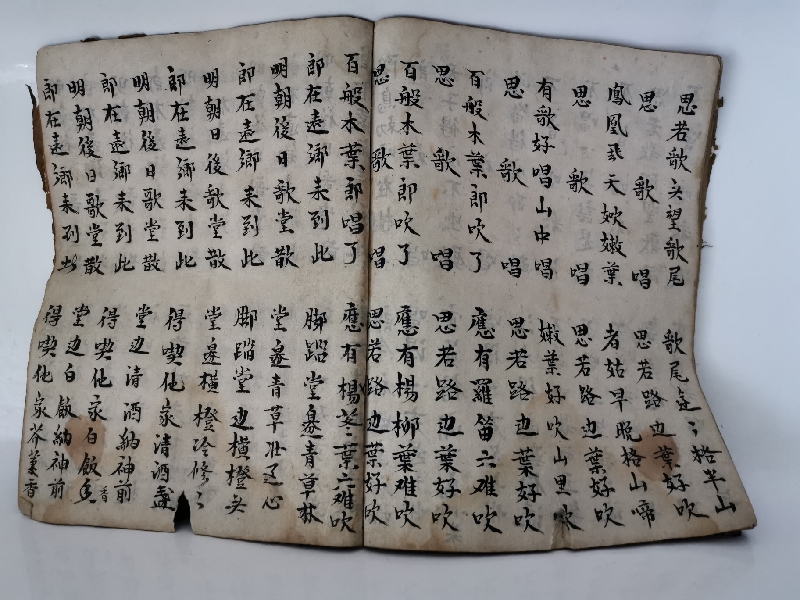 思若歌头望歌尾 歌尾連〻格半山
思歌唱 思若路边葉好吹
鳳凰飛天吹嫩葉 者姑早晚格山啼
思歌唱 思若路边葉好吹
有歌好唱山中唱 嫩葉好吹山里吹
思歌唱 思若路边葉好吹
百般木葉郎吹了 應有羅笛六难吹
思歌唱 思若路边葉好吹
百般木葉郎吹了 應有楊柳葉难吹
思歌唱 思若路边葉好吹
百般木葉郎唱了 應有楊葉〻六难吹
郎在遠鄉来到此 脚踏堂邊青草林
明朝後日歌堂散 堂邊青草壯心
郎在遠鄉来到此 脚踏堂边横橙头
明朝日後歌堂散 堂邊横橙冷修〻
郎在遠鄉来到此 得喫他家清酒盞
明朝後日歌堂散 堂边清酒納神前
郎在遠鄉来到此 得喫他家白飯香
明朝後日歌堂散 堂边白飯納神前
郎在遠鄉来到此 得喫他家芥菜香